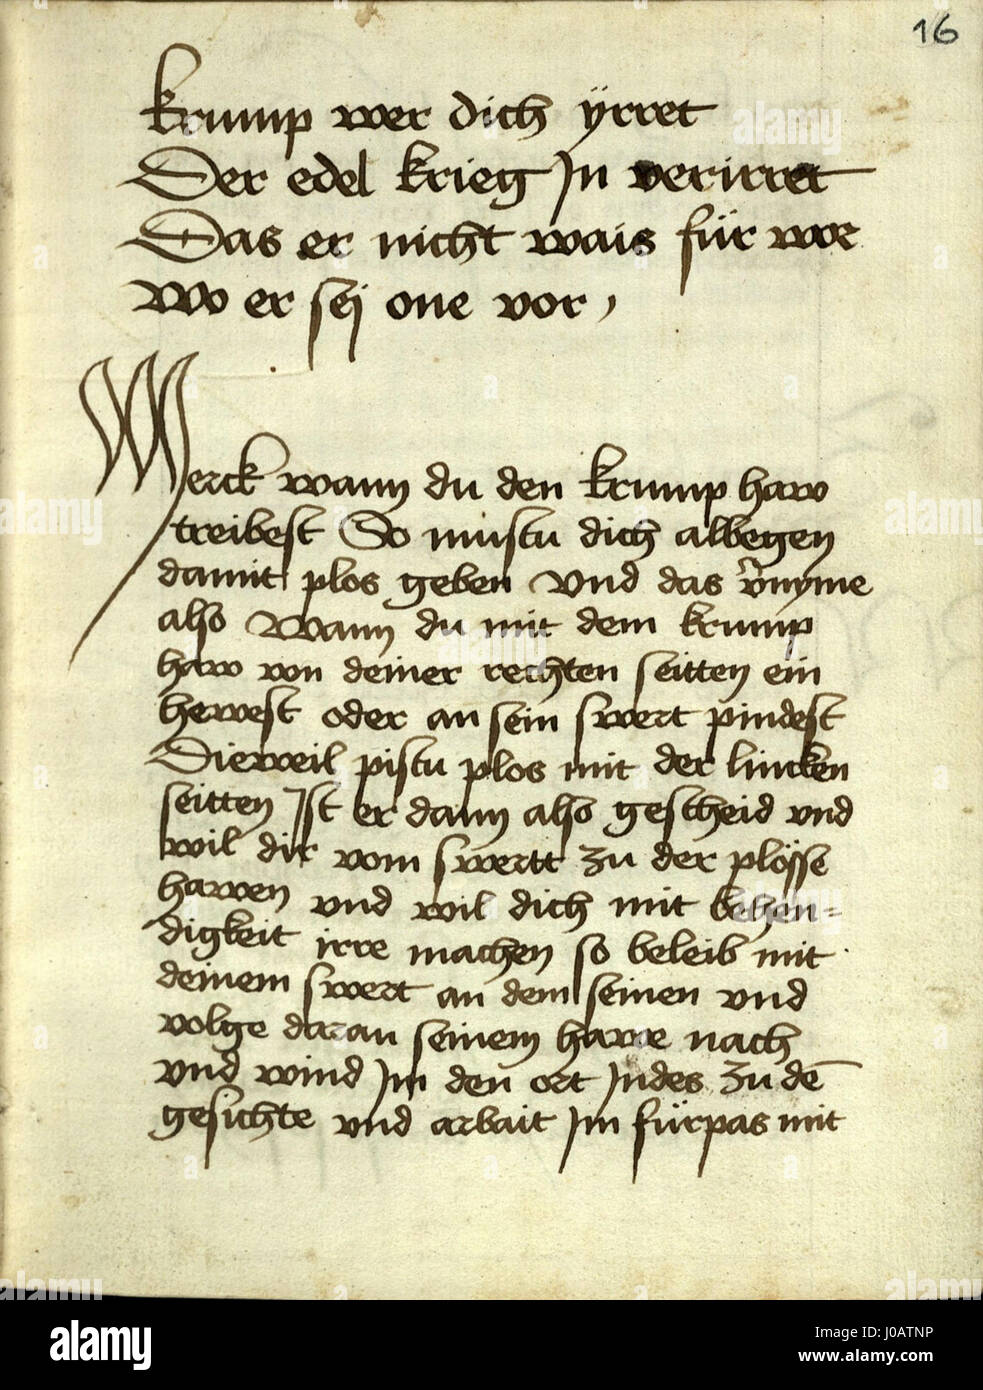 16
krump wer dich ÿrret
Der edel krieg Jn verirret
Das er nicht wais für wor
Wo er sej one vor,
Merck wann du den krump haw
treibest So mustu dich albegen
damit plos geben Vnd das v̈nyme
also Wann du mit dem krump
haw von deiner rechten seitten ein
hewest oder an sein swert pindest
Dieweil pistu plos mit der lincken
seitten Jst er dann also gescheid vnd
wil dir vom swertt zu der plösse
hawen vnd wil dich mit behen=
digkeit irre machen so beleib mit
deinem swert an dem seinen vnd
volge daran seinem hawe nach
vnd wind Jm den ort Jndes zu dē
gesichte vnd arbait Jm fürpas mit
alamy
Image ID: J0ATNP
www.alamy.com